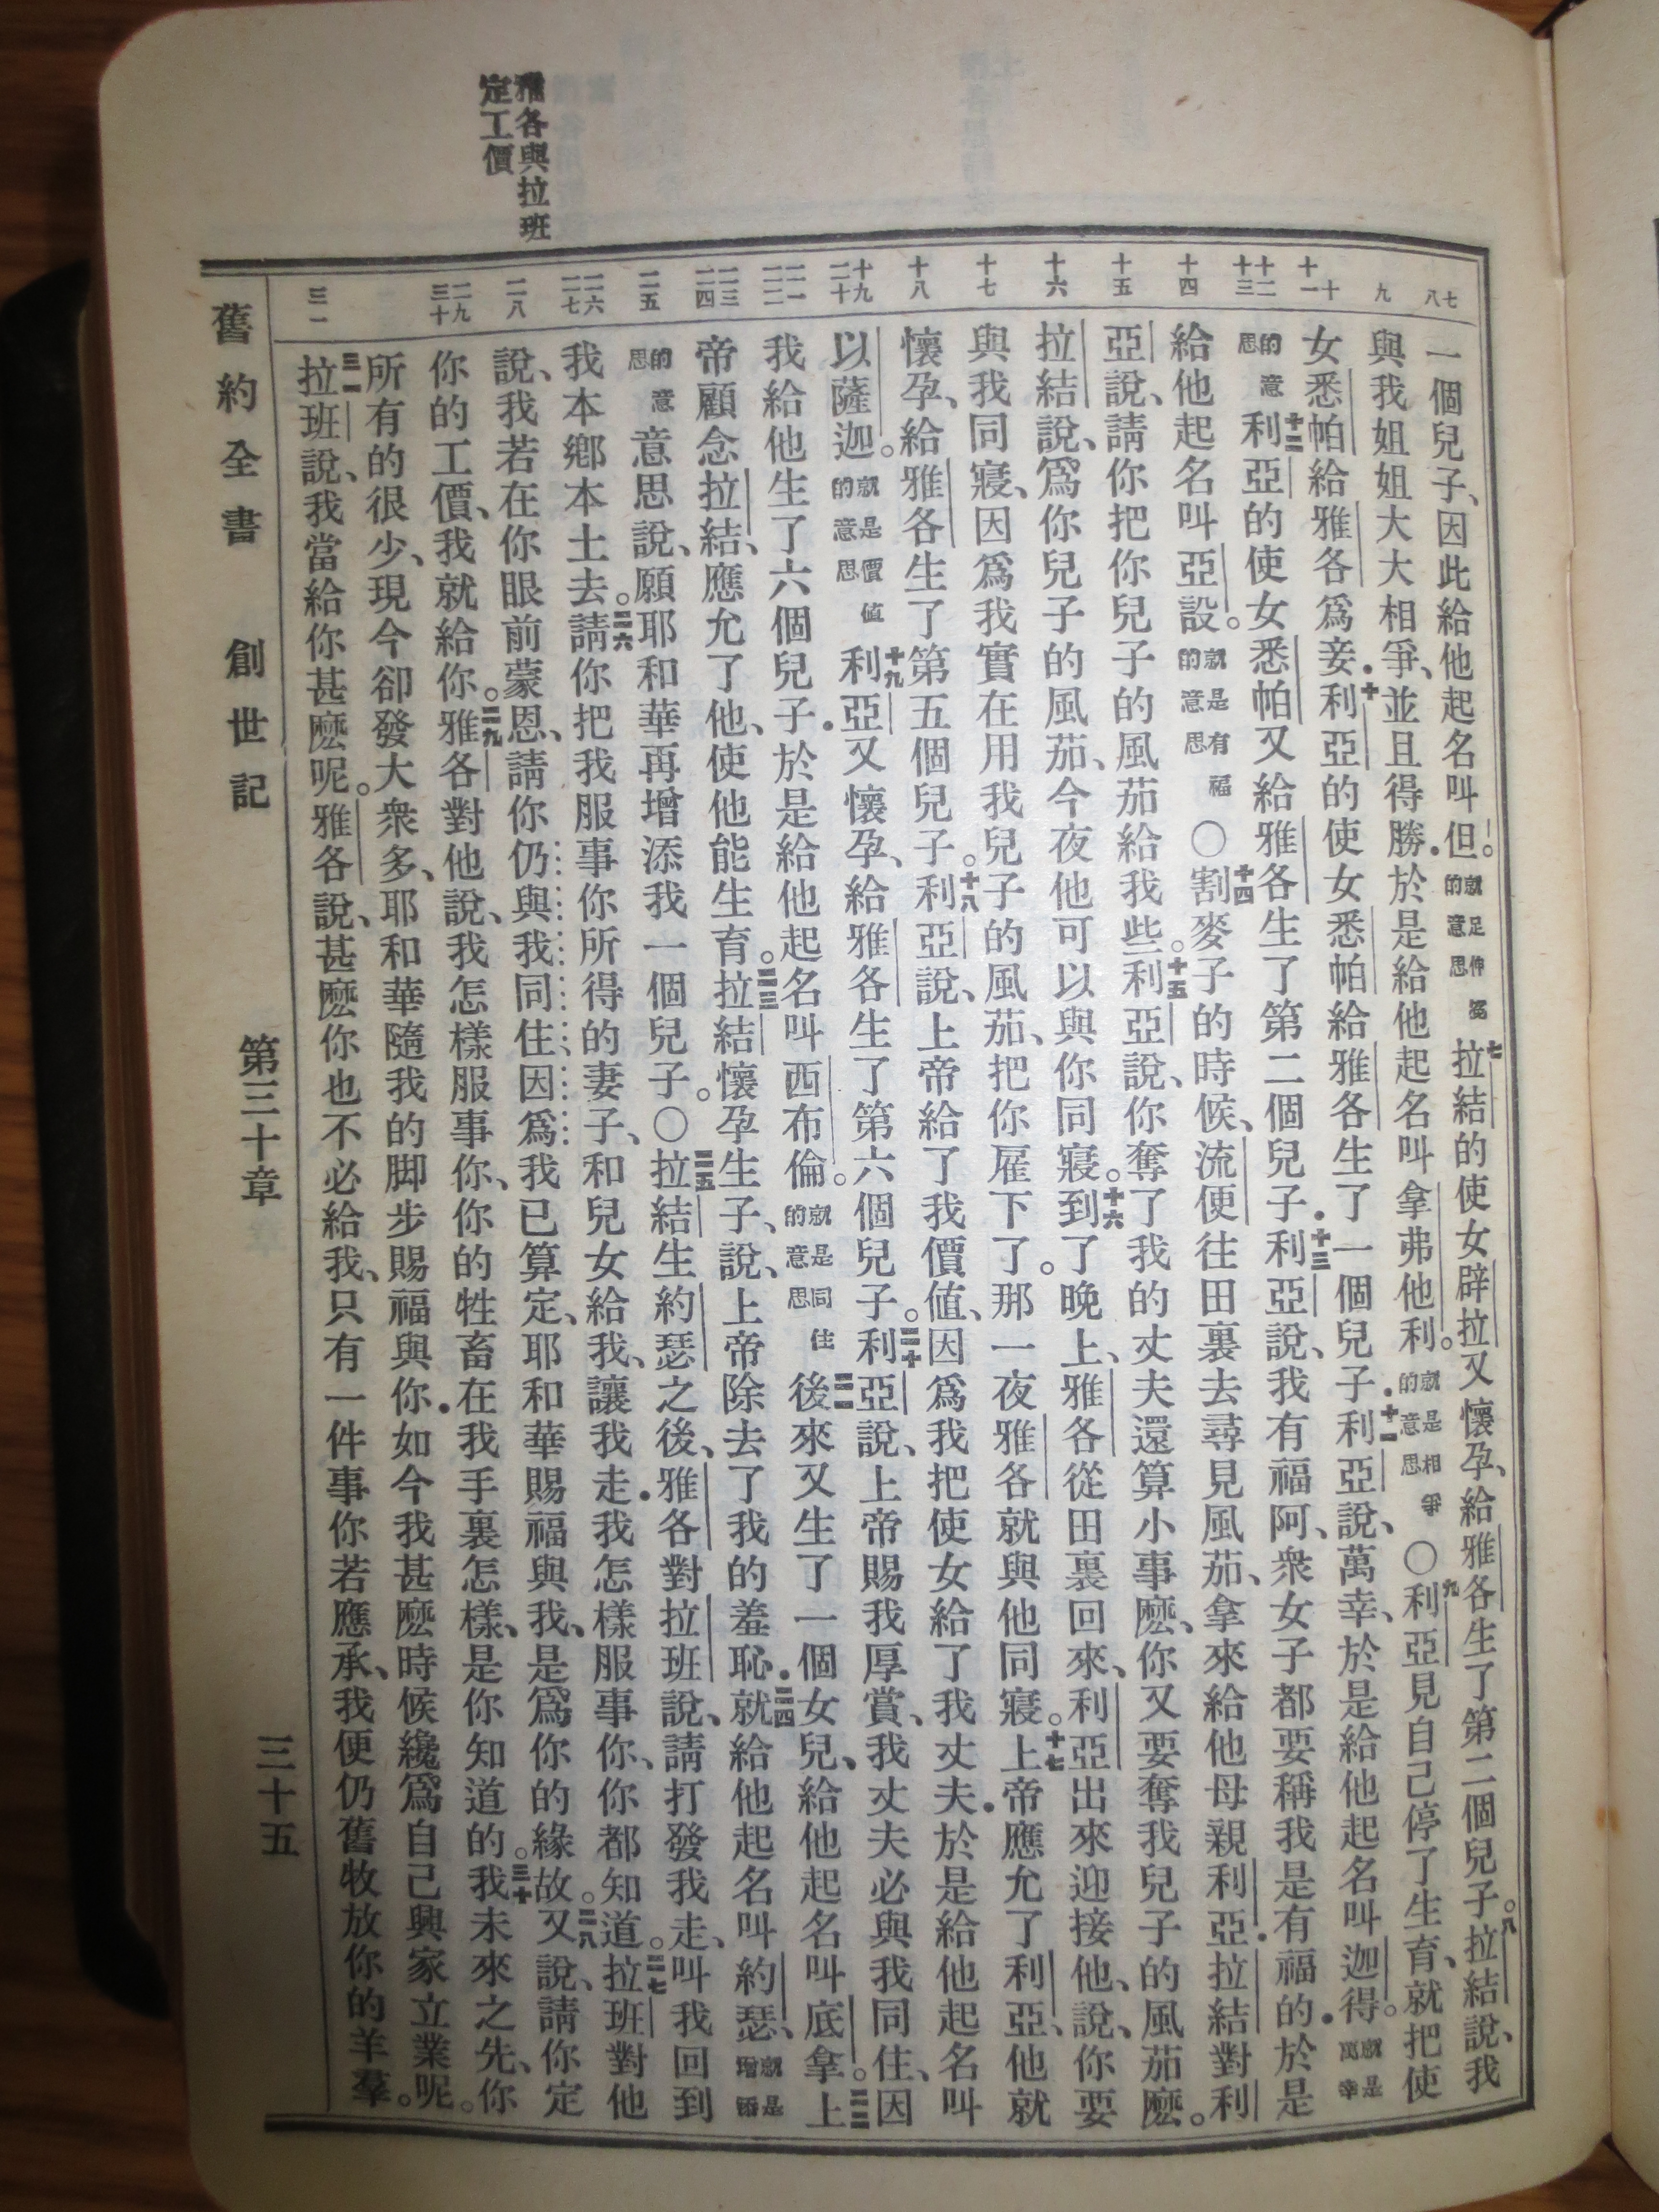 雅各與拉班
定工價
七八
九
十十一
十二十三
十四
十五
十六
十七
十八
十九二十
二一二二
二三二四
二五
二六二七
二八
二九三十
三一
一個兒子、因此給他起名叫但。就是伸冤的意思七拉結的使女辟拉又懷孕、給雅各生了第二個兒子。八拉結說、我
與我姐姐大大相爭、並且得勝．於是給他起名叫拿弗他利。就是相爭的意思〇九利亞見自己停了生育、就把使
女悉帕給雅各爲妾．十利亞的使女悉帕給雅各生了一個兒子．十一利亞說、萬幸、於是給他起名叫迦得。就是萬幸
的意思十二利亞的使女悉帕又給雅各生了第二個兒子．十三利亞說、我有福阿、衆女子都要稱我是有福的．於是
給他起名叫亞設。就是有福的意思〇十四割麥子的時候、流便往田裏去尋見風茄、拿來給他母親利亞．拉結對利
亞說、請你把你兒子的風茄給我些。十五利亞說、你奪了我的丈夫還算小事麽、你又要奪我兒子的風茄麽。
拉結說、爲你兒子的風茄、今夜他可以與你同寢。十六到了晚上、雅各從田裏回來、利亞出來迎接他、說、你要
與我同寢、因爲我實在用我兒子的風茄、把你雇下了。那一夜雅各就與他同寢。十七上帝應允了利亞、他就
懷孕、給雅各生了第五個兒子。十八利亞說、上帝給了我價值、因爲我把使女給了我丈夫．於是給他起名叫
以薩迦。就是價值的意思十九利亞又懷孕、給雅各生了第六個兒子。二十利亞說、上帝賜我厚賞、我丈夫必與我同住、因
我給他生了六個兒子．於是給他起名叫西布倫。就是同住的意思二一後來又生了一個女兒、給他起名叫底拿。二二上
帝顧念拉結、應允了他、使他能生育。二三拉結懷孕生子、說、上帝除去了我的羞恥．二四就給他起名叫約瑟、就是增添
的意思意思說、願耶和華再增添我一個兒子。〇二五拉結生約瑟之後、雅各對拉班說、請打發我走、叫我回到
我本鄉本土去。二六請你把我服事你所得的妻子、和兒女給我、讓我走．我怎樣服事你、你都知道。二七拉班對他
說、我若在你眼前蒙恩、請你仍與我同住、因爲我已算定、耶和華賜福與我、是爲你的緣故。二八又說、請你定
你的工價、我就給你。二九雅各對他說、我怎樣服事你、你的牲畜在我手裏怎樣、是你知道的。三十我未來之先、你
所有的很少、現今卻發大衆多、耶和華隨我的脚步賜福與你．如今我甚麽時候纔爲自己興家立業呢。
三一拉班說、我當給你甚麽呢。雅各說、甚麽你也不必給我、只有一件事你若應承、我便仍舊牧放你的羊羣。
舊約全書　創世記　第三十章　三十五